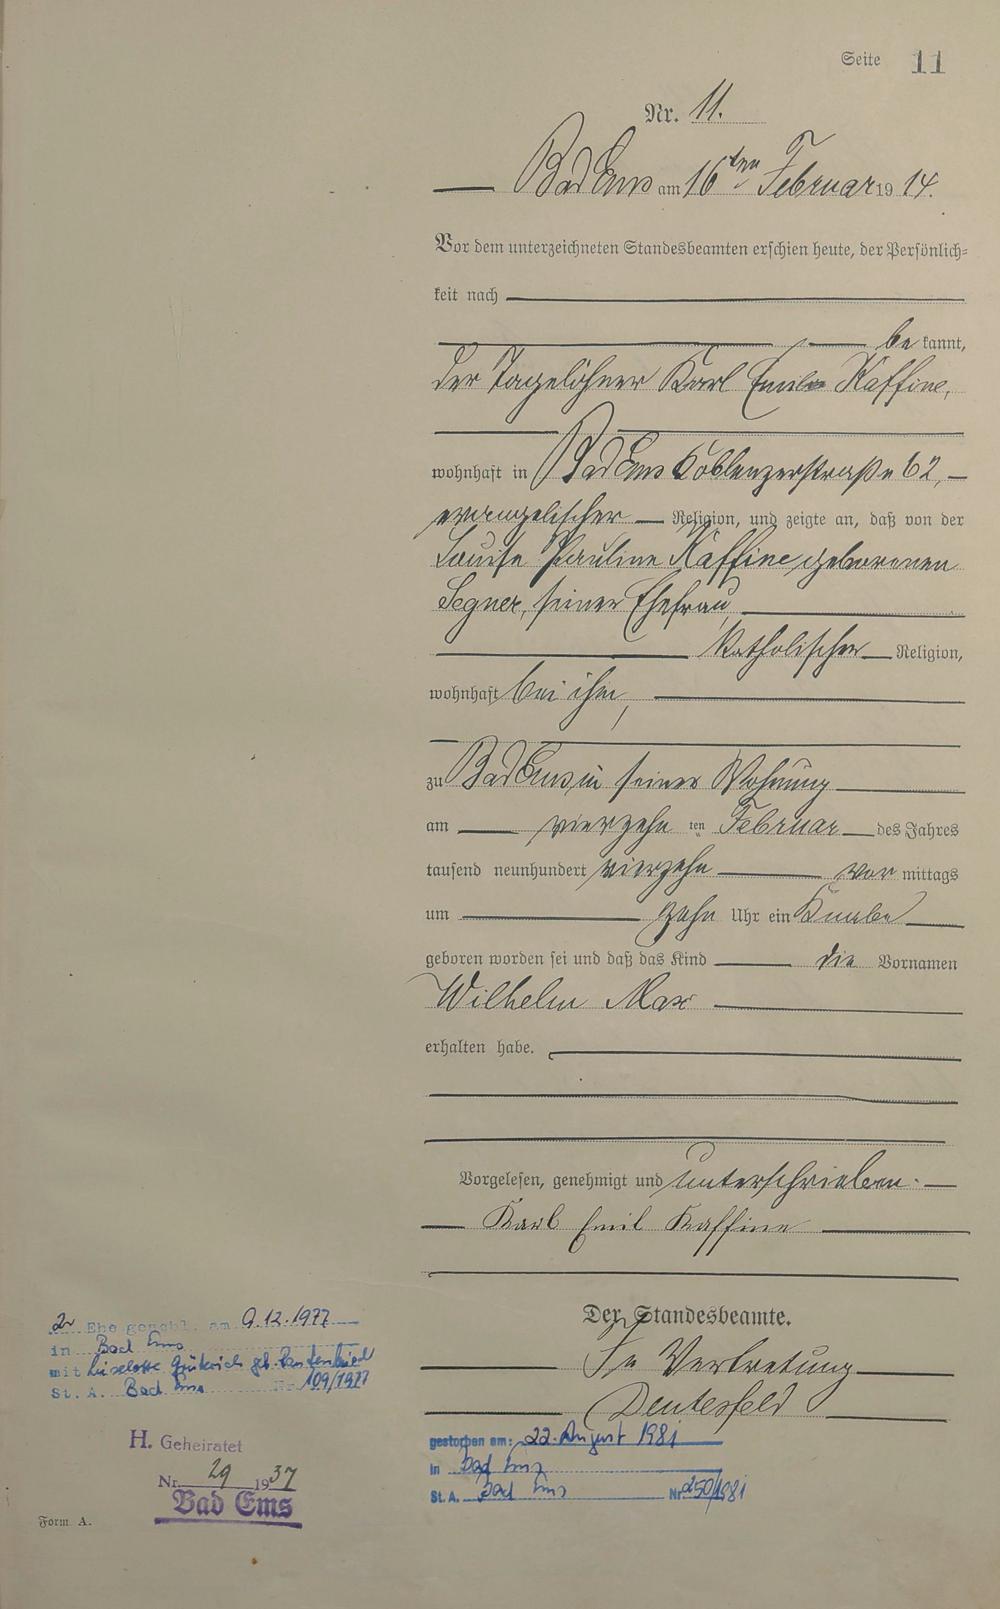 Seite 11
Nr. 11.
Bad Ems am 16ten Februar 19 14.
Vor dem unterzeichneten Standesbeamten erschien heute, der Persönlich-
keit nach
be kannt,
der Tagelöhner Karl Emil Kaffine,
wohnhaft in Bad Ems Coblenzerstraße 62,
evangelischer Religion, und zeigte an, daß von der
Louise Pauline Kaffine geborenen
Segner, seiner Ehefrau,
katholischer Religion,
wohnhaft bei ihm,
zu Bad Ems in seiner Wohnung
am vierzehn ten Februar des Jahres
tausend neunhundert vierzehn vor mittags
um zehn Uhr ein Knabe
geboren worden sei und daß das Kind die Vornamen
Wilhelm Max
erhalten habe.
Vorgelesen, genehmigt und unterschrieben.
Karl Emil Kaffine
Der Standesbeamte.
In Vertretung
2. Ehe geschl. am 9.12.1977
in Bad Ems
mit Liselotte geb.
St. A. Bad Ems Nr. 109/1977
H. Geheiratet
Nr. 29 1937
Bad Ems
gestorben am: 22. August 1981
in Bad Ems
St. A. Bad Ems Nr. 250/1981
Form A.